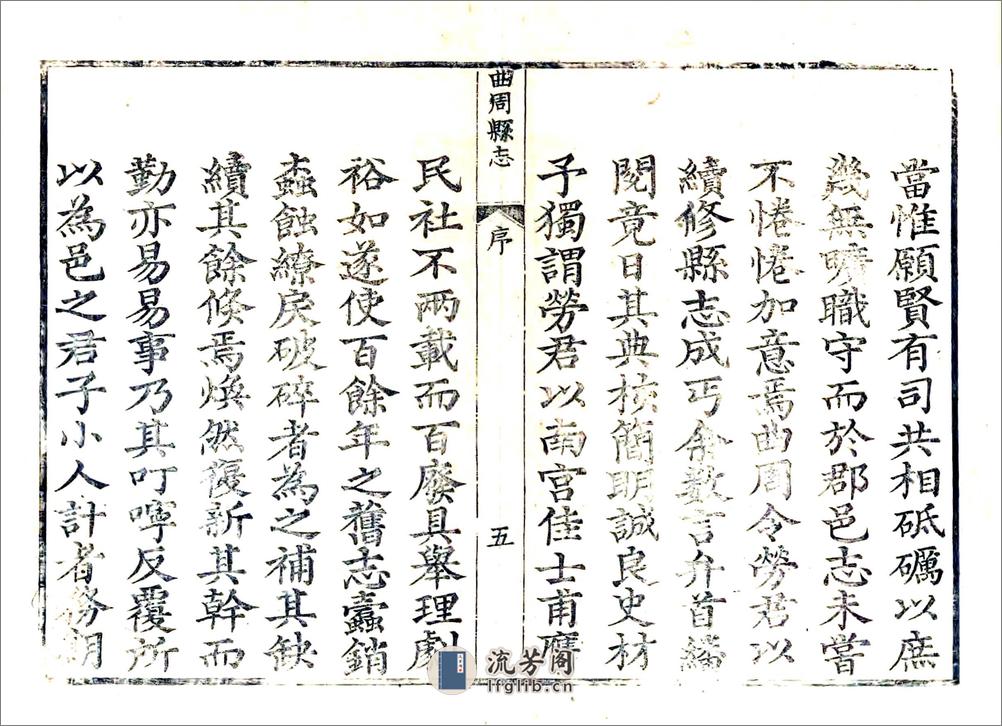 當惟願賢有司共相砥礪以庶
幾無曠職守而於郡邑志未嘗
不惓惓加意焉曲周令勞君以
續修縣志成丐余數言弁首繙
閱竟日其典核簡明誠良史材
子獨謂勞君以南宮佳士甫膺
曲周縣志
序
五
民社不兩載而百廢具舉理劇
裕如遂使百餘年之舊志蠹銷
蟊蝕繚戾破碎者為之補其缺
續其餘倏焉煥然復新其幹而
勤亦易易事乃其叮嚀反覆所
以為邑之君子小人計者務期
流芳阁
lfglib.cn